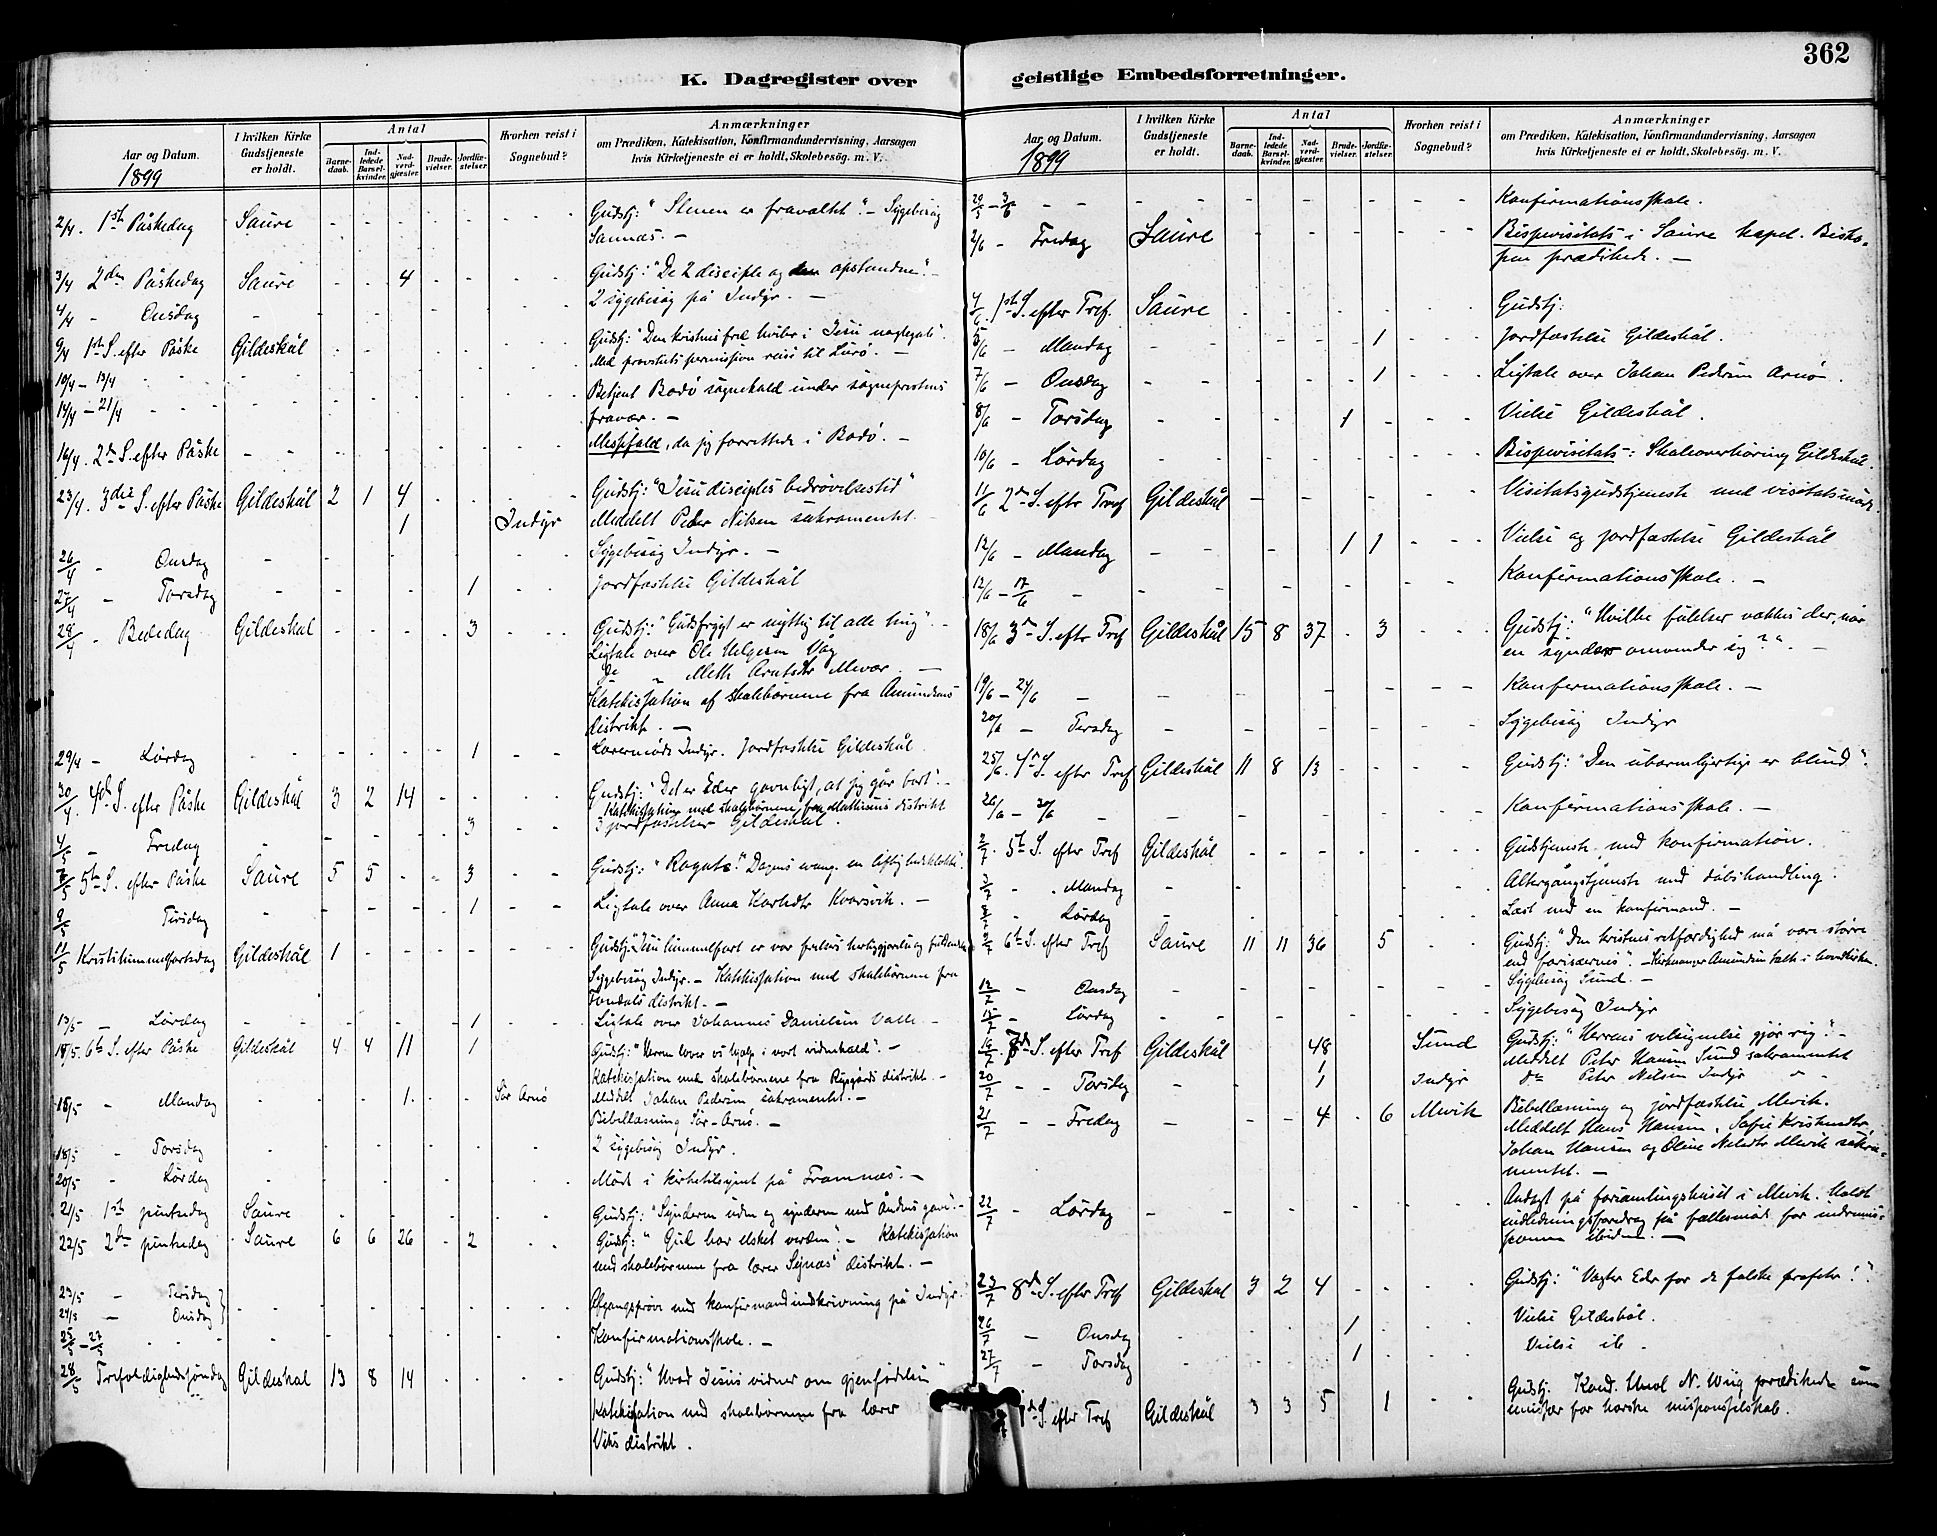 362
K. Dagregister over geistlige Embedsforretninger.
Aar og Datum. 1899
I hvilken Kirke Gudstjeneste er holdt.
Antal
Barnedaab.
Indledede Barselkvinder.
Nadverdgjester.
Brudevielser.
Jordfæstelser.
Hvorhen reist i Sognebud?
Anmærkninger
om Prædiken, Katekisation, Konfirmandundervisning, Aarsagen
hvis Kirketjeneste ei er holdt, Skolebesøg. m. V.
2/4 1ste Påskedag Saure - - - - - - Gudstj: "Stenen er fravæltet". - Sygebesøg
Sannæs. -
3/4 2den Påskedag Saure - - 4 - - - Gudstj: "De 2 disciple og den opstandne". -
4/4 - Onsdag - 2 sygebesøg på Indyr. -
9/4 1ste S. efter Påske Gildeskål Gudstj: "Den kristnes fred hviler i Jesu naglegab".
Med provstets permission reise til Lurö. -
10/4 - 13/4
14/4 - 21/4 Betjent Bodö sognekald under sogneprestens
fravær. -
16/4. 2den S. efter Påske - - Messefald, da jeg forrettede i Bodö. -
23/4. 3die S. efter Påske Gildeskål 2 1 4 Gudstj: "Jesu disciples bedrøvelsestid"
1 Indyr Meddelt Peder Nilsen sakramentet.
26/4 - Onsdag - Sygebesøg Indyr. -
27/4 - Torsdag - 1 Jordfæstelse Gildeskål
28/4 - Bededag Gildeskål - - - - 3 Gudstj: "Gudsfrygt er nyttig til alle ting". -
Ligtale over Ole Helgesen Våg
Do " Meth Arntsdtr Mevær. -
Katekisation af skolebørnene fra Amundsens
distrikt. -
29/4 - Lördag - - - - 1 - - Lærermøde Indyr. Jordfæstelse Gildeskål
30/4. 4de S. efter Påske Gildeskål 3 2 14 Gudstj: "Det er Eder gavnligt, at jeg går bort". -
Katekisation med skolebørnene fra Mathisens distrikt
4/5 - Fredag - 3 3 jordfæstelser Gildeskål.
7/5 5te S. efter Påske Saure 5 5 - - 3 Gudstj: "Rogate". Dagens evang. en liflig bedeklokke.
9/5 Tirsdag - 1 - - Ligtale over Anna Karlsdtr Kvarsvik. -
11/5 Kristi himmelfartsdag Gildeskål 1 - Gudstj: "Jesu himmelfart er vor frelses
Sygebesøg Indyr. - Katekisation med skolebørnene fra
distrikt. -
13/5 - Lördag - 1 Ligtale over Johannes Danielsen Valle -
14/5. 6te S. efter Påske Gildeskål 4 4 11 1 Gudstj: "Herren lover os hjælp i vort vidnekald". -
Katekisation med skolebørnene fra distrikt. -
15/5 - Mandag - 1. Sör Arnö Meddelt Johan Pedersen sakramentet. -
Bibellæsning Sör-Arnö. -
18/5 - Torsdag - 2 sygebesøg Indyr.
20/5 - Lördag Möde i kirketilsynet på Framnæs. -
21/5 1ste pintsedag Saure Gudstj: "Synderen uden og synderen med Åndens gave. -
22/5 2den pintsedag Saure 6 6 26 - 2 Gudstj: "Gud har elsket verden". - Katekisation
med skolebørnene fra lærer distrikt. -
23/5 - Tirsdag
24/5 - Onsdag Afgangsprøve med konfirmandindskrivning på Indyr.
25/5 - 27/5 Konfirmationsskole. -
28/5 Trefoldighedssøndag Gildeskål 13 8 14 Gudstj: "Hvad Jesus vidner om gjenfødelsen"
Katekisation med skolebørnene fra lærer
Viks distrikt.
Aar og Datum. 1899
I hvilken Kirke Gudstjeneste er holdt.
Antal
Barnedaab.
Indledede Barselkvinder.
Nadverdgjester.
Brudevielser.
Jordfæstelser.
Hvorhen reist i Sognebud?
Anmærkninger
om Prædiken, Katekisation, Konfirmandundervisning, Aarsagen
hvis Kirketjeneste ei er holdt, Skolebesög. m. V.
29/5 - 3/6 - - Konfirmationsskole.
2/6 - Fredag Saure Bispevisitats i Saure kapel. Bisko-
pen prædikede. -
4/6. 1ste S. efter Tref. Saure Gudstj:
5/6 - Mandag - 1 Jordfæstelse Gildeskål.
7/6 - Onsdag - 1 Ligtale over Johan Pedersen Arnö.
8/6 - Torsdag - 1 Vielse Gildeskål.
10/6 - Lördag Bispevisitats: Skoleoverhöring Gildeskål.
11/6 2den S. efter Tref Gildeskål Visitatsgudstjeneste med visitatsmøde.
12/6 - Mandag - 1 1 Vielse og jordfæstelse Gildeskål
12/6 - 17/6 - Konfirmationsskole. -
18/6 3die S. efter Tref Gildeskål 15 8 37 . 3 Gudstj: "Hvilke følelser vækkes der, når
en synder omvender sig?". -
19/6 - 24/6 - Konfirmationsskole. -
20/6 - Tirsdag Sygebesøg Indyr
25/6. 4de S. efter Tref Gildeskål 11 8 13 Gudstj: "Den ubarmhjertige er blind".
26/6 - 30/6 - Konfirmationsskole. -
2/7. 5te S. efter Tref Gildeskål Gudstjeneste med konfirmation.
3/7 - Mandag Altergangstjeneste med dåbshandling.
8/7 - Lördag Læst med en konfirmand. -
9/7 6te S. efter Tref Saure 11 11 36 5 Gudstj: "Den kristnes retfærdighed må være större
end farisæernes". - Kirkesanger Amundsen
12/7 - Onsdag Sygebesøg Sund. -
15/7 - Lördag Sygebesøg Indyr
16/7. 7de S. efter Tref Gildeskål 48 Gudstj: "Herrens velsignelse gjør rig". -
1 Sund Meddelt Peter Hansen Sund sakramentet
20/7 - Torsdag 1 Indyr do Peter Nilsen Indyr " -
21/7 - Fredag 4 . 6 Mevik Bibellæsning og jordfæstelse Mevik.
Meddelt Hans Hansen, Sofie Kristensdtr,
Johan Hansen og Oline Nilsdtr Mevik sakra-
mentet. -
22/7 - Lördag Andagt på forsamlingshuset i Mevik. Holdt
indledningsforedrag på fællesmøde for indremis-
sionen ibidem. -
23/7 8de S. efter Tref Gildeskål 3 2 4 Gudstj: "Vogter Eder for de falske profeter!".
26/7 - Onsdag 1 Vielse Gildeskål.
27/7 - Torsdag 1 Vielse ib.
S. efter Tref Gildeskål 3 3 5 1 Gudstj: Kand. theol N. Wiig prædikede som
emissær for norske missionsselskab.